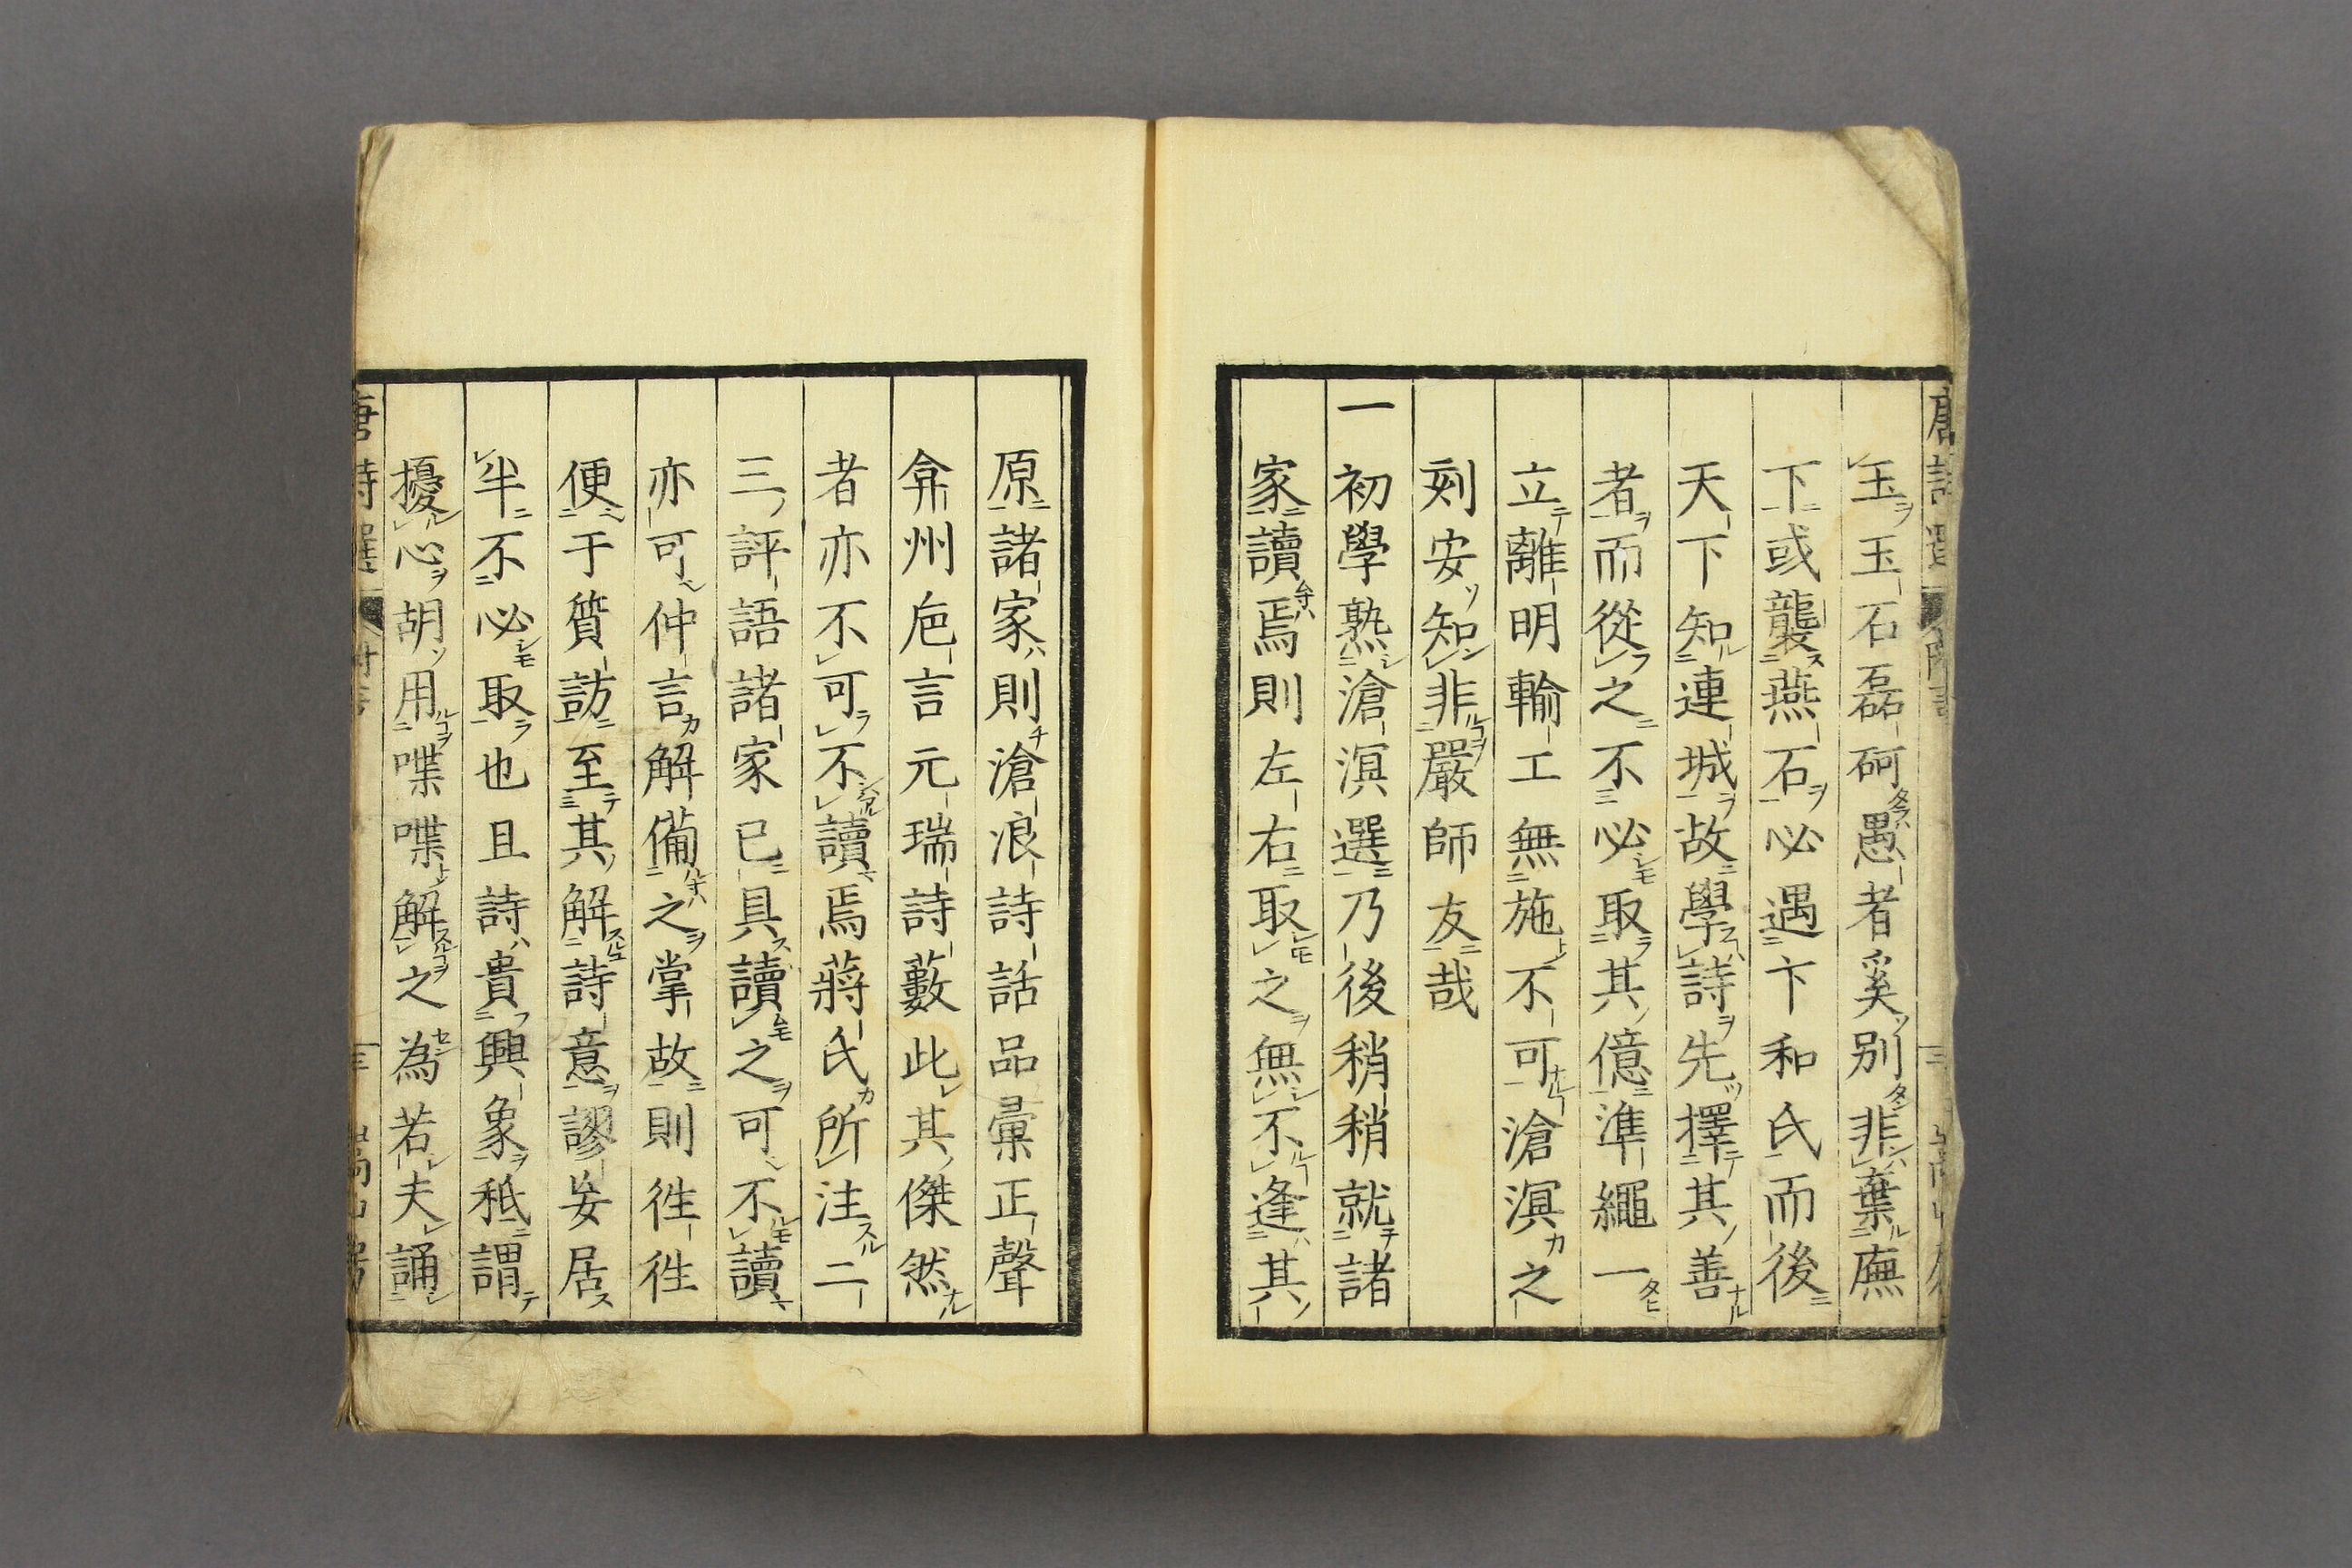 玉玉石磊砢愚者奚別非棄廡
下或襲燕石必遇卞和氏而後
天下知連城故學詩先擇其善
者而從之不必取其億準繩一
立離明輸工無施不可滄溟之
刻安知非嚴師友哉
一初學熟滄溟選乃後稍稍就諸
家讀焉則左右取之無不逢其
原諸家則滄浪詩話品彙正聲
弇州巵言元瑞詩藪此其傑然
者亦不可不讀焉蔣氏所注二
三評語諸家已具讀之可不讀
亦可仲言解備之掌故則徃徃
便于質訪至其解詩意謬妄居
半不必取也且詩貴興象秪謂
擾心胡用喋喋解之為若夫誦